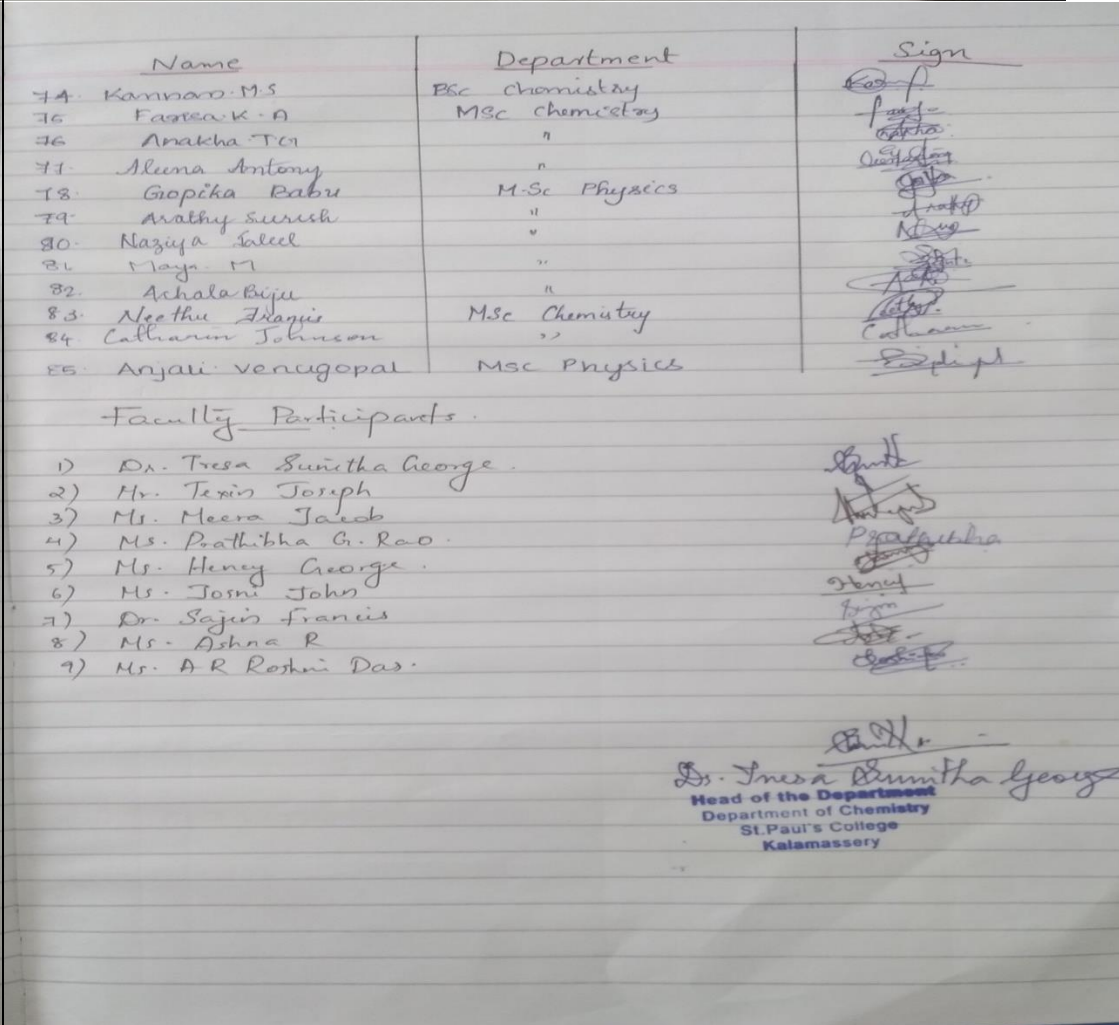 Name Department Sign
74. Kannan. M.S BSc chemistry
75 K. A MSc chemistry
76 Anakha. T "
77. Aleena Antony "
78. Gopika Babu M.Sc Physics
79. Arathy Suresh "
80. Naziya Saleel "
81. Maya. M "
82. Achala Biju "
83. Neethu Francis MSc Chemistry
84. Catharin Johnson ,, Catharin
85. Anjali Venugopal MSc Physics
Faculty Participants.
1) Dr. Tresa Sunitha George.
2) Mr. Texin Joseph
3) Ms. Meera Jacob
4) Ms. Prathibha G. Rao. Prathibha
5) Ms. Heney George.
6) Ms. Josni John Heney
7) Dr. Sajin Francis
8) Ms. Ashna R
9) Ms. A R Roshni Das.
Dr. Tresa Sunitha George
Head of the Department
Department of Chemistry
St.Paul's College
Kalamassery